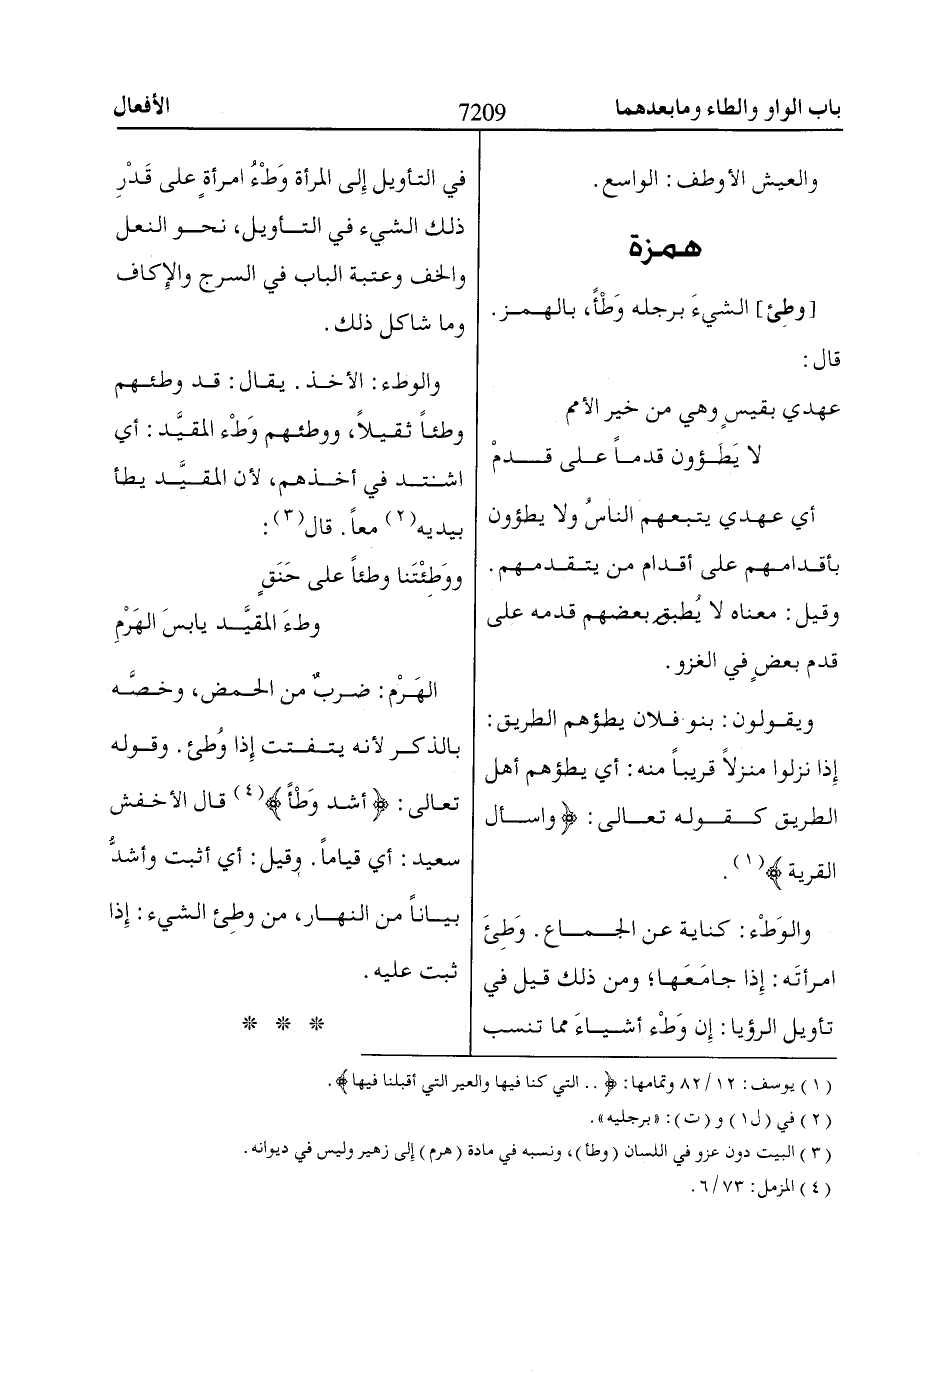 باب الواو والطاء وما بعدهما
7209
الأفعال
والعيش الأوطف: الواسع.
همزة
[وطِئ] الشيءَ برجله وَطْأً، بالهمز.
قال:
عهدي بقيسٍ وهي من خير الأمم
لا يَطَؤون قدماً على قدمْ
أي عهدي يتبعهم الناسُ ولا يطؤون
بأقدامهم على أقدام من يتقدمهم.
وقيل: معناه لا يُطبق بعضهم قدمه على
قدم بعضٍ في الغزو.
ويقولون: بنو فلان يطؤهم الطريق:
إذا نزلوا منزلاً قريباً منه: أي يطؤهم أهل
الطريق كقوله تعالى: ﴿واسأل
القرية﴾(١).
والوَطْء: كناية عن الجماع. وَطِئَ
امرأتَه: إذا جامَعَها؛ ومن ذلك قيل في
تأويل الرؤيا: إن وَطْء أشياءَ مما تنسب
في التأويل إلى المرأة وَطْءُ امرأةٍ على قَدْرِ
ذلك الشيء في التأويل، نحو النعل
والخف وعتبة الباب في السرج والإكاف
وما شاكل ذلك.
والوطء: الأخذ. يقال: قد وطئهم
وطئاً ثقيلاً، ووطئهم وَطْء المقيَّد: أي
اشتد في أخذهم، لأن المقيَّد يطأ
بيديه(٢) معاً. قال(٣):
ووَطِئْتَنا وطئاً على حَنَقٍ
وطءَ المقيَّد يابسَ الهَرْمِ
الهَرْم: ضربٌ من الحمض، وخصَّه
بالذكر لأنه يتفتت إذا وُطئ. وقوله
تعالى: ﴿أشد وَطْأً﴾(٤) قال الأخفش
سعيد: أي قياماً. وقيل: أي أثبت وأشدُّ
بياناً من النهار، من وطِئ الشيء: إذا
ثبت عليه.
* * *
(١) يوسف: ١٢/ ٨٢ وتمامها: ﴿.. التي كنا فيها والعير التي أقبلنا فيها﴾.
(٢) في (ل١) و(ت): «برجليه».
(٣) البيت دون عزو في اللسان (وطأ)، ونسبه في مادة (هرم) إلى زهير وليس في ديوانه.
(٤) المزمل: ٧٣/ ٦.